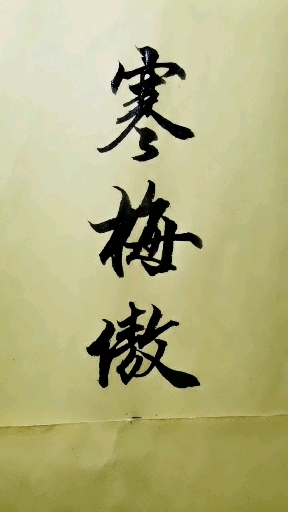 寒梅傲